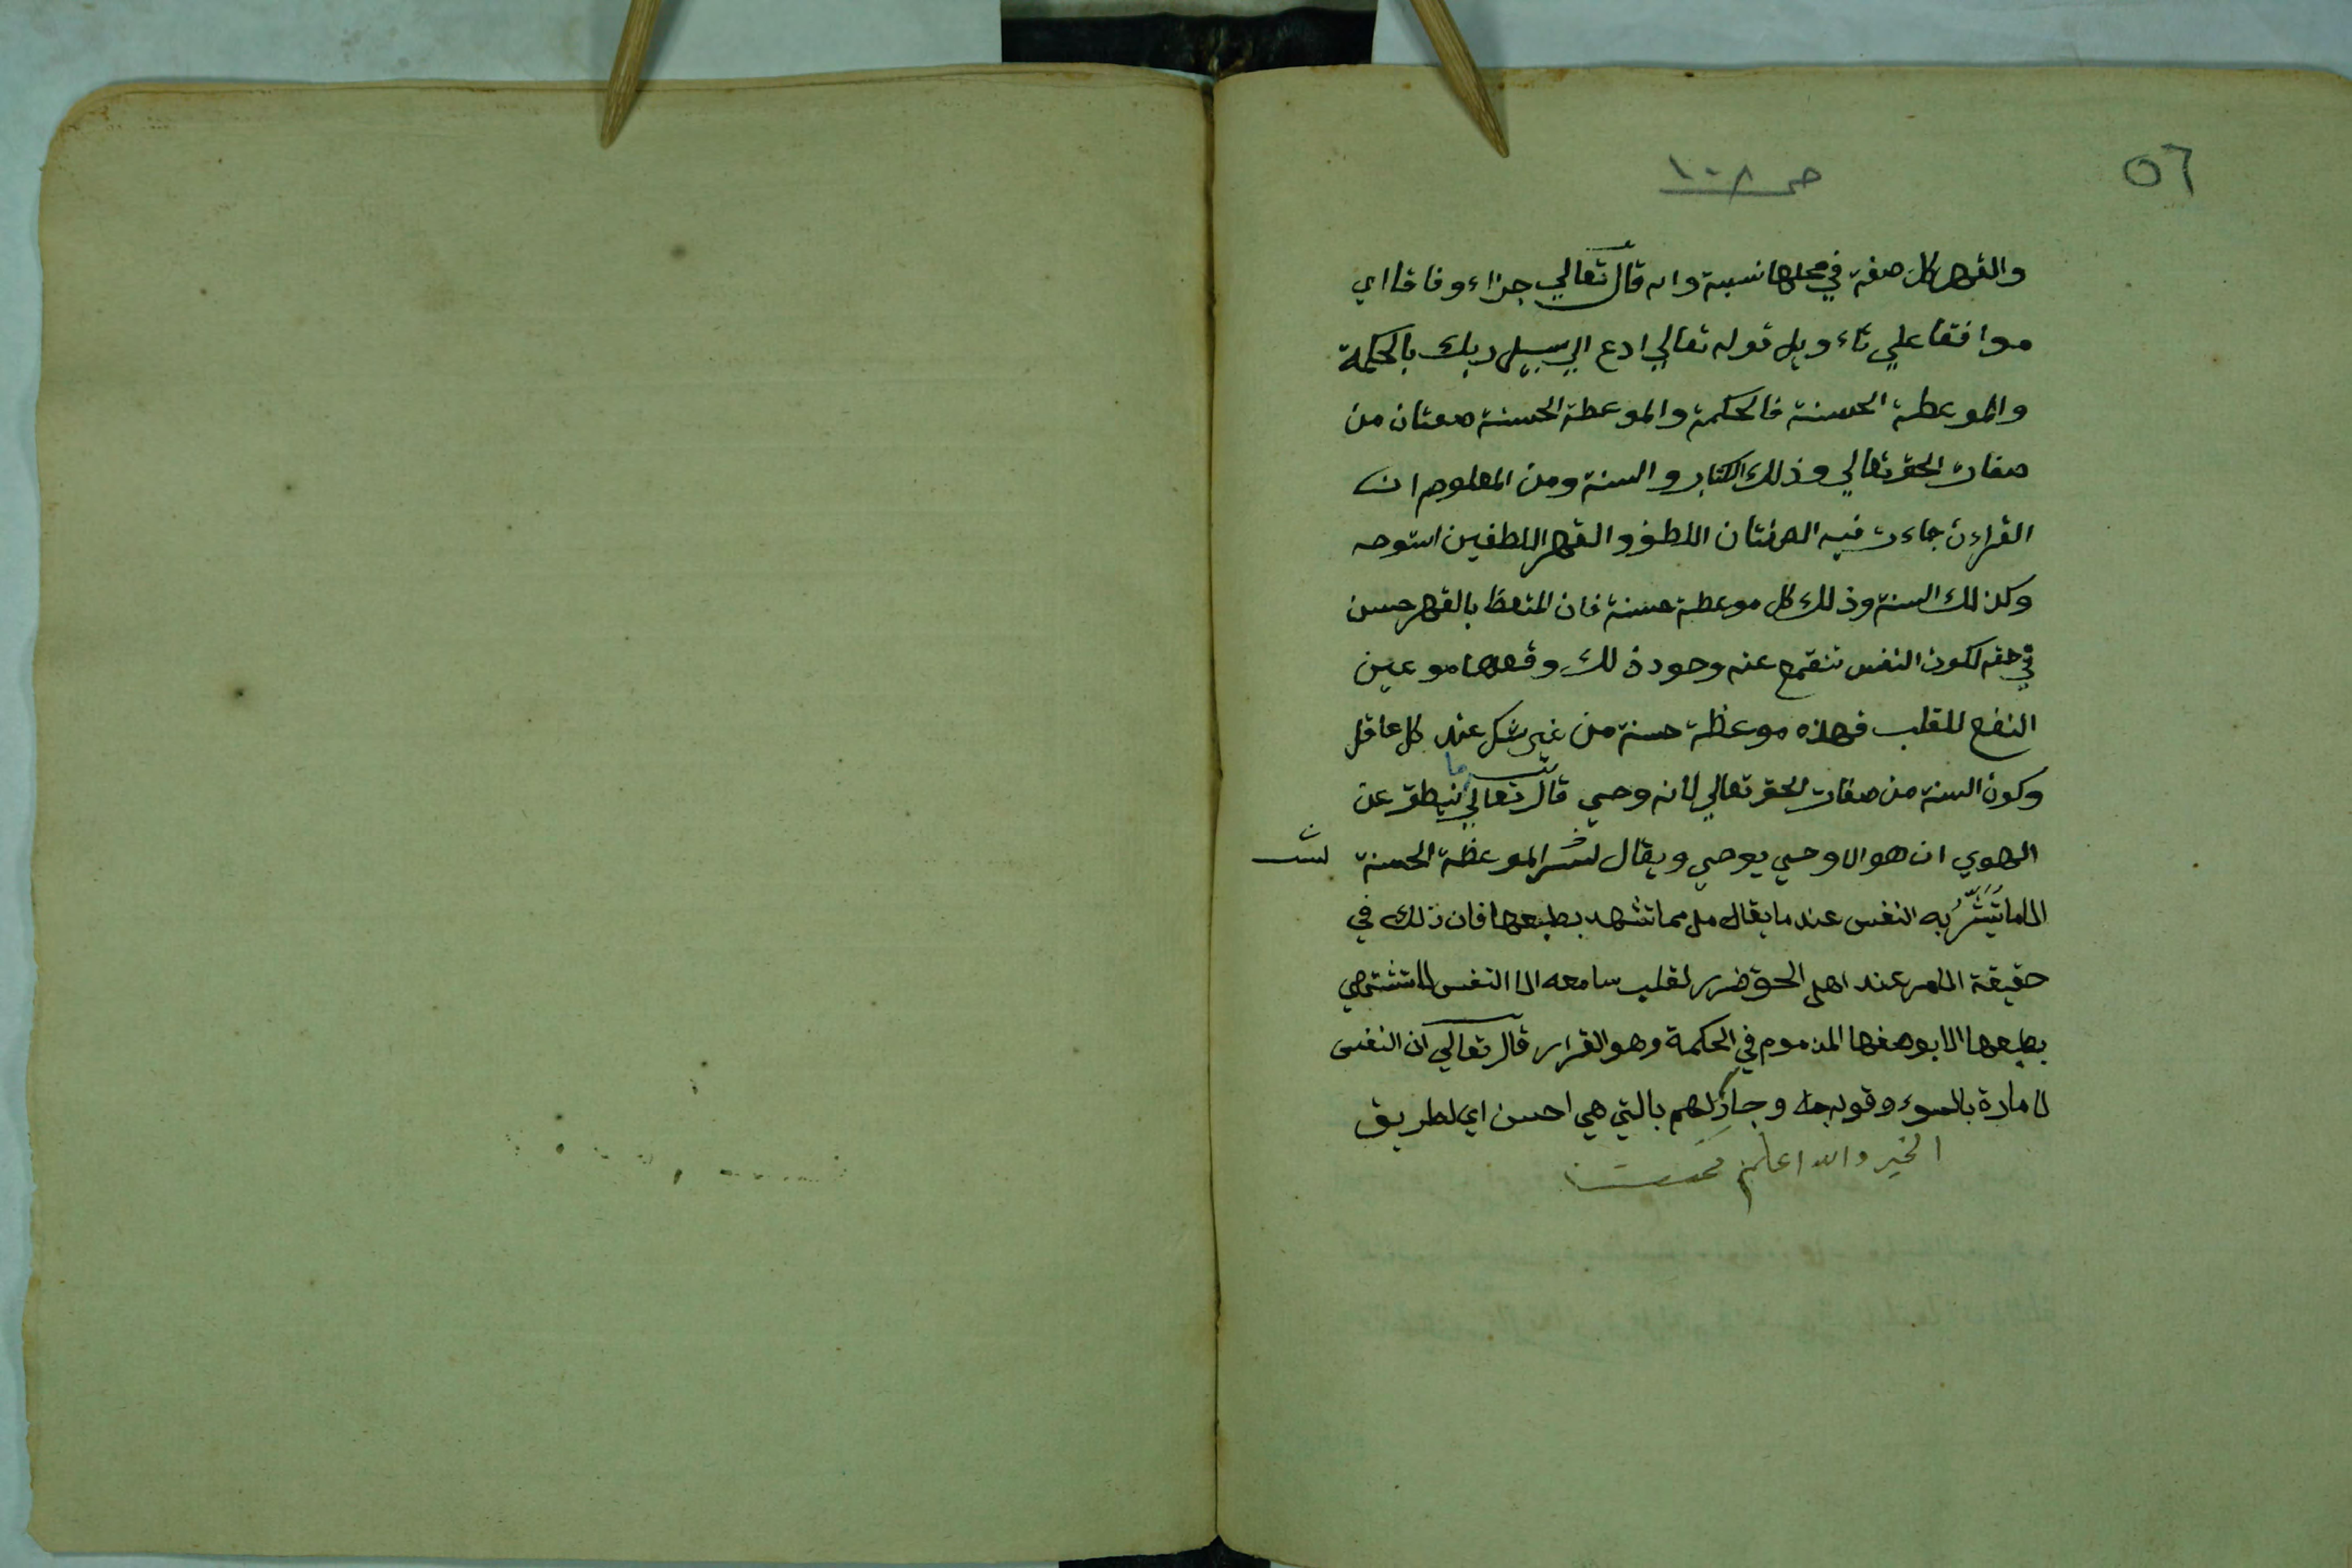 ٥٦
صـ ١٠٨
والقهر كل صفة في محلها نسبة وانه قال تعالي جزاء وفاقا اي
موافقا علي تاءويل قوله تعالي ادع الي سبيل ربك بالحكمة
والموعطة الحسنة فالحكمة والموعطة الحسنة صفتان من
صفات الحق تعالي وذلك الكتاب والسنة ومن المعلوم ان
القراءن جاءت فيه الصفتان اللطف والقهر
وكذلك السنة وذلك كل موعطة حسنة فان المتعظ بالقهر حسن
في حقه لكون النفس تنقمع عنه وجود ذلك وقمعها هو عين
النفع للقلب فهذه موعظة حسنة من غير شك عند كل عاقل
وكون السنة من صفات الحق تعالي لانه وحي قال تعالي ما ينطق عن
الهوي ان هو الا وحي يوحي ويقال الموعظة الحسنة
به النفس عند ما يقال مما تشهد بطبعها فان ذلك في
حقيقة الامر عند اهل الحق ضرر لقلب سامعه اذا النفس لا تشتهي
بطبعها الا بوصفها المذموم في الحكمة وهو القرار قال تعالي ان النفس
لامارة بالسوء وقوله وجادلهم بالتي هي احسن اي لطريق
الخير والله اعلم تمت